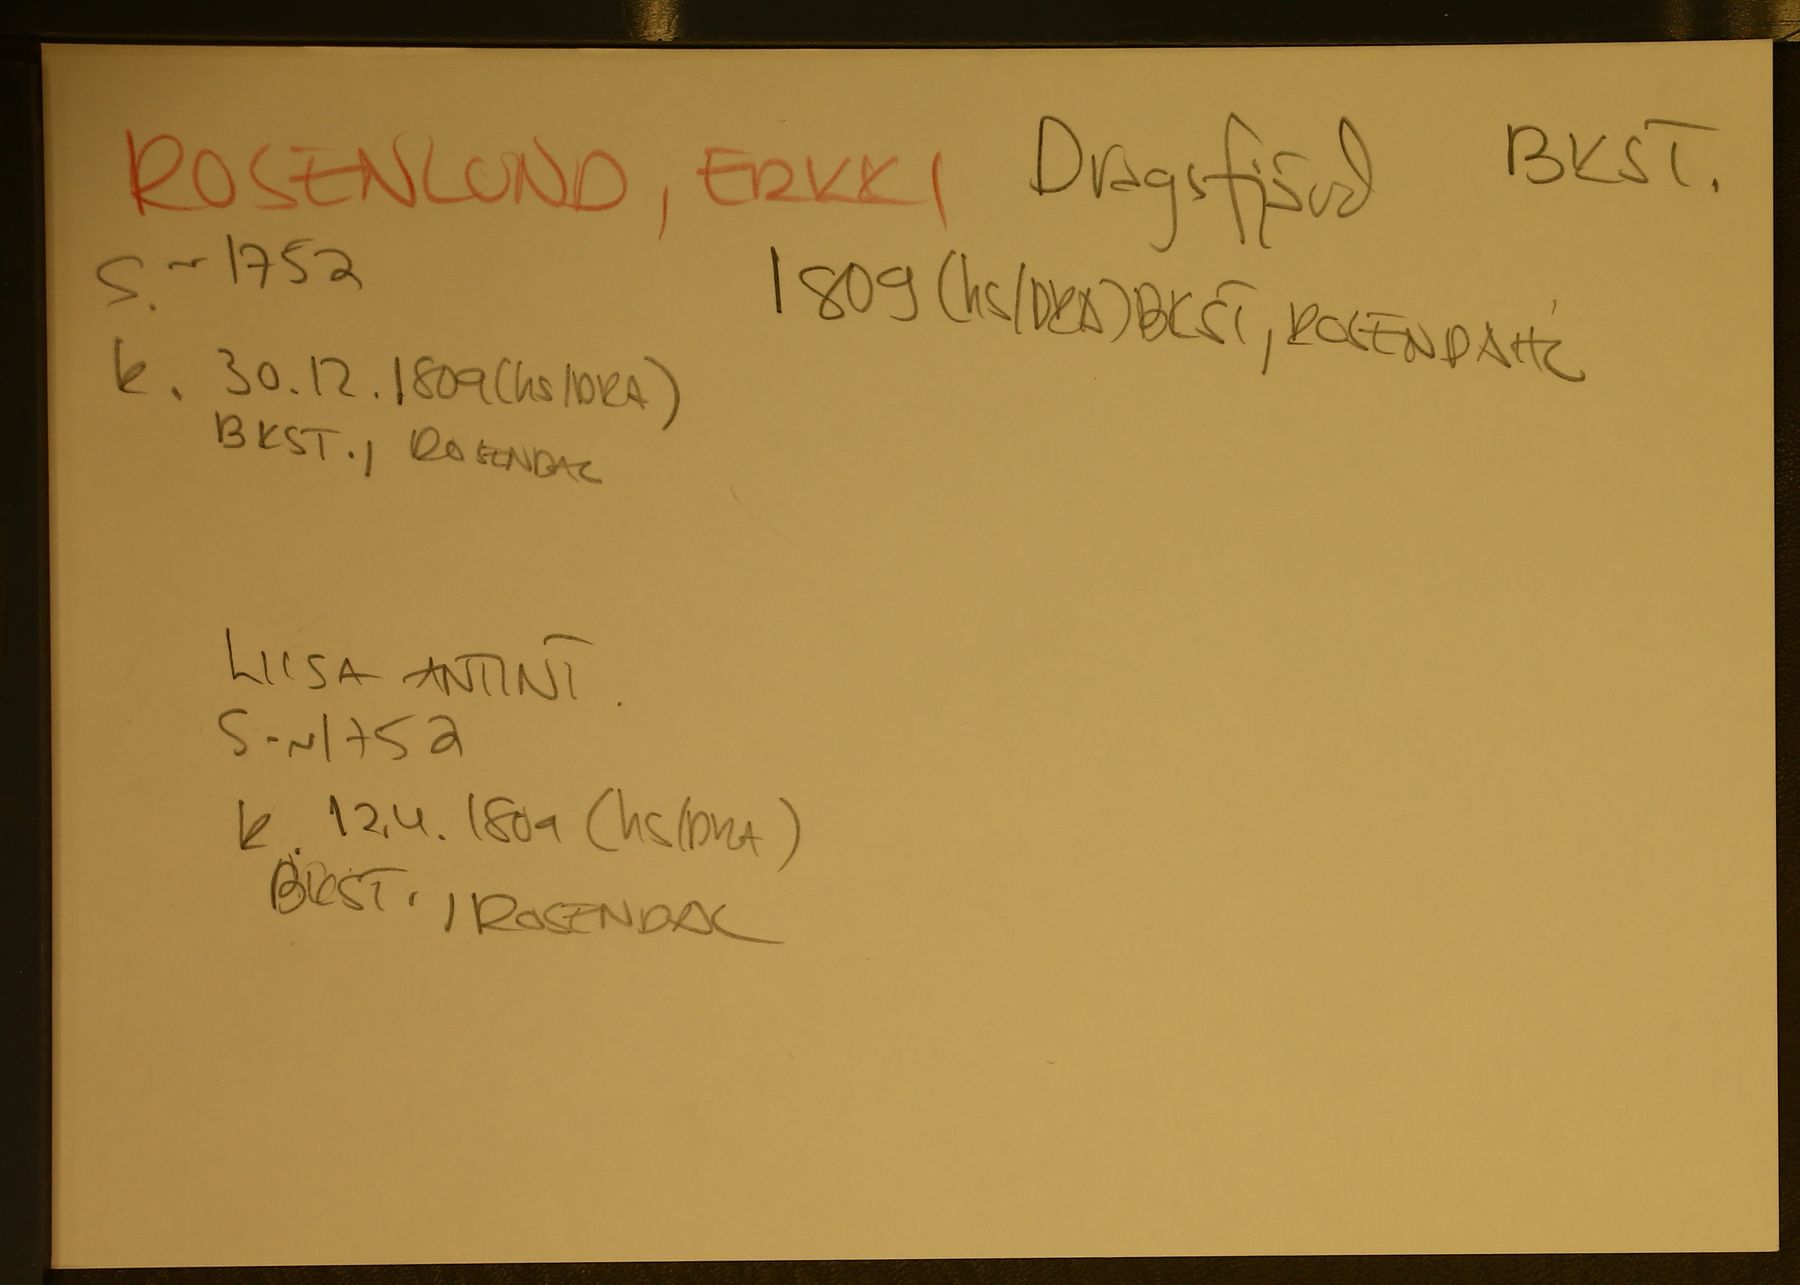 ROSENLUND, ERKKI Dragsfjärd BKST.
S. ~1752
1809 (hs/DRA) BKST, ROSENDAHL
k. 30.12.1809 (hs/DRA)
BKST., ROSENDAL
LIISA ANTINT.
S. ~1752
k. 12.4.1809 (hs/DRA)
BKST., ROSENDAL